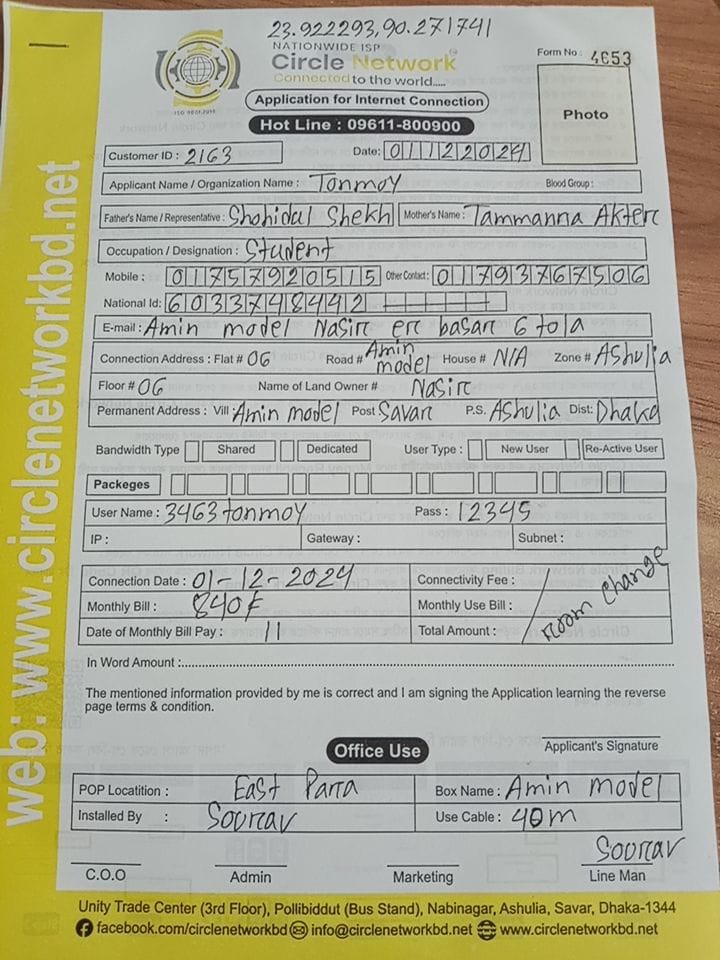 23.922293,90.271741
NATIONWIDE ISP
Circle Network
Connected to the world.....
ISO 9001:2015
Form No : 4653
Application for Internet Connection
Photo
Hot Line : 09611-800900
Customer ID : 2163 Date: 01122024
Applicant Name / Organization Name : Tonmoy Blood Group :
Father's Name / Representative : Shohidal Shekh Mother's Name : Tammanna Akter
Occupation / Designation : Student
Mobile : 01757920515 Other Contact : 01793767506
National Id: 6033748442
E-mail : Amin model Nasir er basar 6 tola
Connection Address : Flat # 06 Road # Amin model House # N/A Zone # Ashulia
Floor # 06 Name of Land Owner # Nasir
Permanent Address : Vill : Amin model Post Savar P.S. Ashulia Dist: Dhaka
Bandwidth Type Shared Dedicated User Type : New User Re-Active User
Packeges
User Name : 3463tonmoy Pass : 12345
IP : Gateway : Subnet :
Connection Date : 01-12-2024 Connectivity Fee :
Monthly Bill : 840৳ Monthly Use Bill :
Date of Monthly Bill Pay : 11 Total Amount :
Room Change
In Word Amount :
The mentioned information provided by me is correct and I am signing the Application learning the reverse
page terms & condition.
Office Use
Applicant's Signature
POP Locatition : East Parra Box Name : Amin model
Installed By : Sourav Use Cable : 40m
Sourav
C.O.O Admin Marketing Line Man
Unity Trade Center (3rd Floor), Pollibiddut (Bus Stand), Nabinagar, Ashulia, Savar, Dhaka-1344
facebook.com/circlenetworkbd info@circlenetworkbd.net www.circlenetworkbd.net
web: www.circlenetworkbd.net